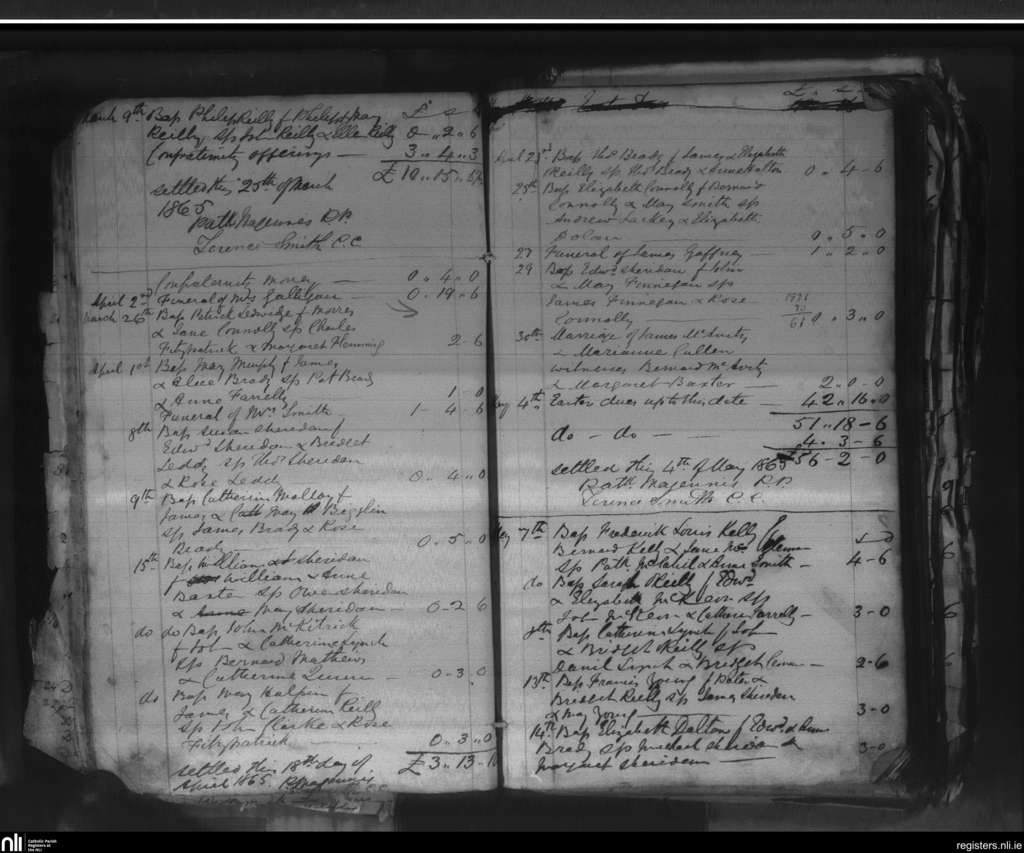 March 9th Bap Philip Reilly f Philip & May £ s
Reilly sp Joh Reilly & Ellen Reilly 0 .. 2 .. 6
Confraternity offerings — 3 .. 4 .. 3
£ 10 .. 15 ..
settled this 25th of March
1865
Path Magennes P.P.
Terence Smith C.C.
Confraternity money — 0 .. 4 .. 0
April 2nd Funeral of Mrs Galligan — 0 . 19 .. 6
March 26th Bap Patrick Ledwidge f Morres
& Jane Connolly sp Charles
Fitzpatrick & Margaret Flemming 2 - 6
April 1st Bap May Murphy f James
& Alice Brady sp Pat Brady
& Anne Farrelly 1 - 0
Funeral of Mrs Smith — 1 - 4 - 6
8th Bap Susan Sheridan f
Edwd Sheridan & Bridget
Leddy sp Thos Sheridan
& Rose Leddy 0 .. 4 .. 0
9th Bap Catherin Molloy f
James & Cath May
sp James Brady & Rose
Brady 0 .. 5 .. 0
15th Bap William Sheridan
f William & Anne
Baxter sp Owen Sheridan
& May Sheridan — 0 - 2 6
do do Bap John McKitrick
f Joh & Catherine Lynch
sp Bernard Mathews
& Catherine Quinn — 0 - 3 . 0
do Bap May Halpin f
James & Catherin Reill
sp John Clarke & Rose
Fitzpatrick — 0 .. 3 .. 0
settled this 18th day of £ 3 .. 13 - 
April 1865. P Magennis
April 23rd Bap Thos Brady f James & Elizabeth
Reilly sp Thos Brady & Anne Dalton 0 .. 4 - 6
25th Bap Elizabeth Connolly f Bernard
Connolly & May Smith sp
Andrew Lackey & Elizabeth
Dolan — 0 .. 5 .. 0
27 Funeral of James Gaffney — 1 .. 2 .. 0
29 Bap Edwd Sheridan f John
& May Finnegan sp
James Finnegan & Rose
Connolly — 61 0 .. 3 .. 0
30th Marriage of James McAvity
& Marianne Cullen
witnesses Bernard McAvity
& Margaret Baxter — 2 .. 0 - 0
May 4th Easter dues up to this date — 42 .. 16 .. 0
51 .. 18 - 6
do — do — 4 . 3 - 6
£56 - 2 - 0
settled this 4th of May 1865
Path Magennis P.P.
Terence Smith C.C.
May 7th Bap Frederick Louis Kelly f s D
Bernard Kelly & Jane
sp Path McCabe & Anne Smith — 4 - 6
do Bap Sarah Reilly f Edwd
& Elizabeth McKeon sp
Joh McKeon & Catherine Farrelly — 3 - 0
8th Bap Catherine Lynch f Joh
& Bridget Reilly sp
Daniel Lynch & Bridget — 2 - 6
13th Bap Francis Young f Peter &
Bridget Reilly sp James Sheridan
& May Young — 3 - 0
14th Bap Elizabeth Dalton f Edwd & Anne
Brady sp Michael Sheridan &
Margaret Sheridan — 3 - 0
nli
Catholic Parish
Registers at
the NLI
registers.nli.ie